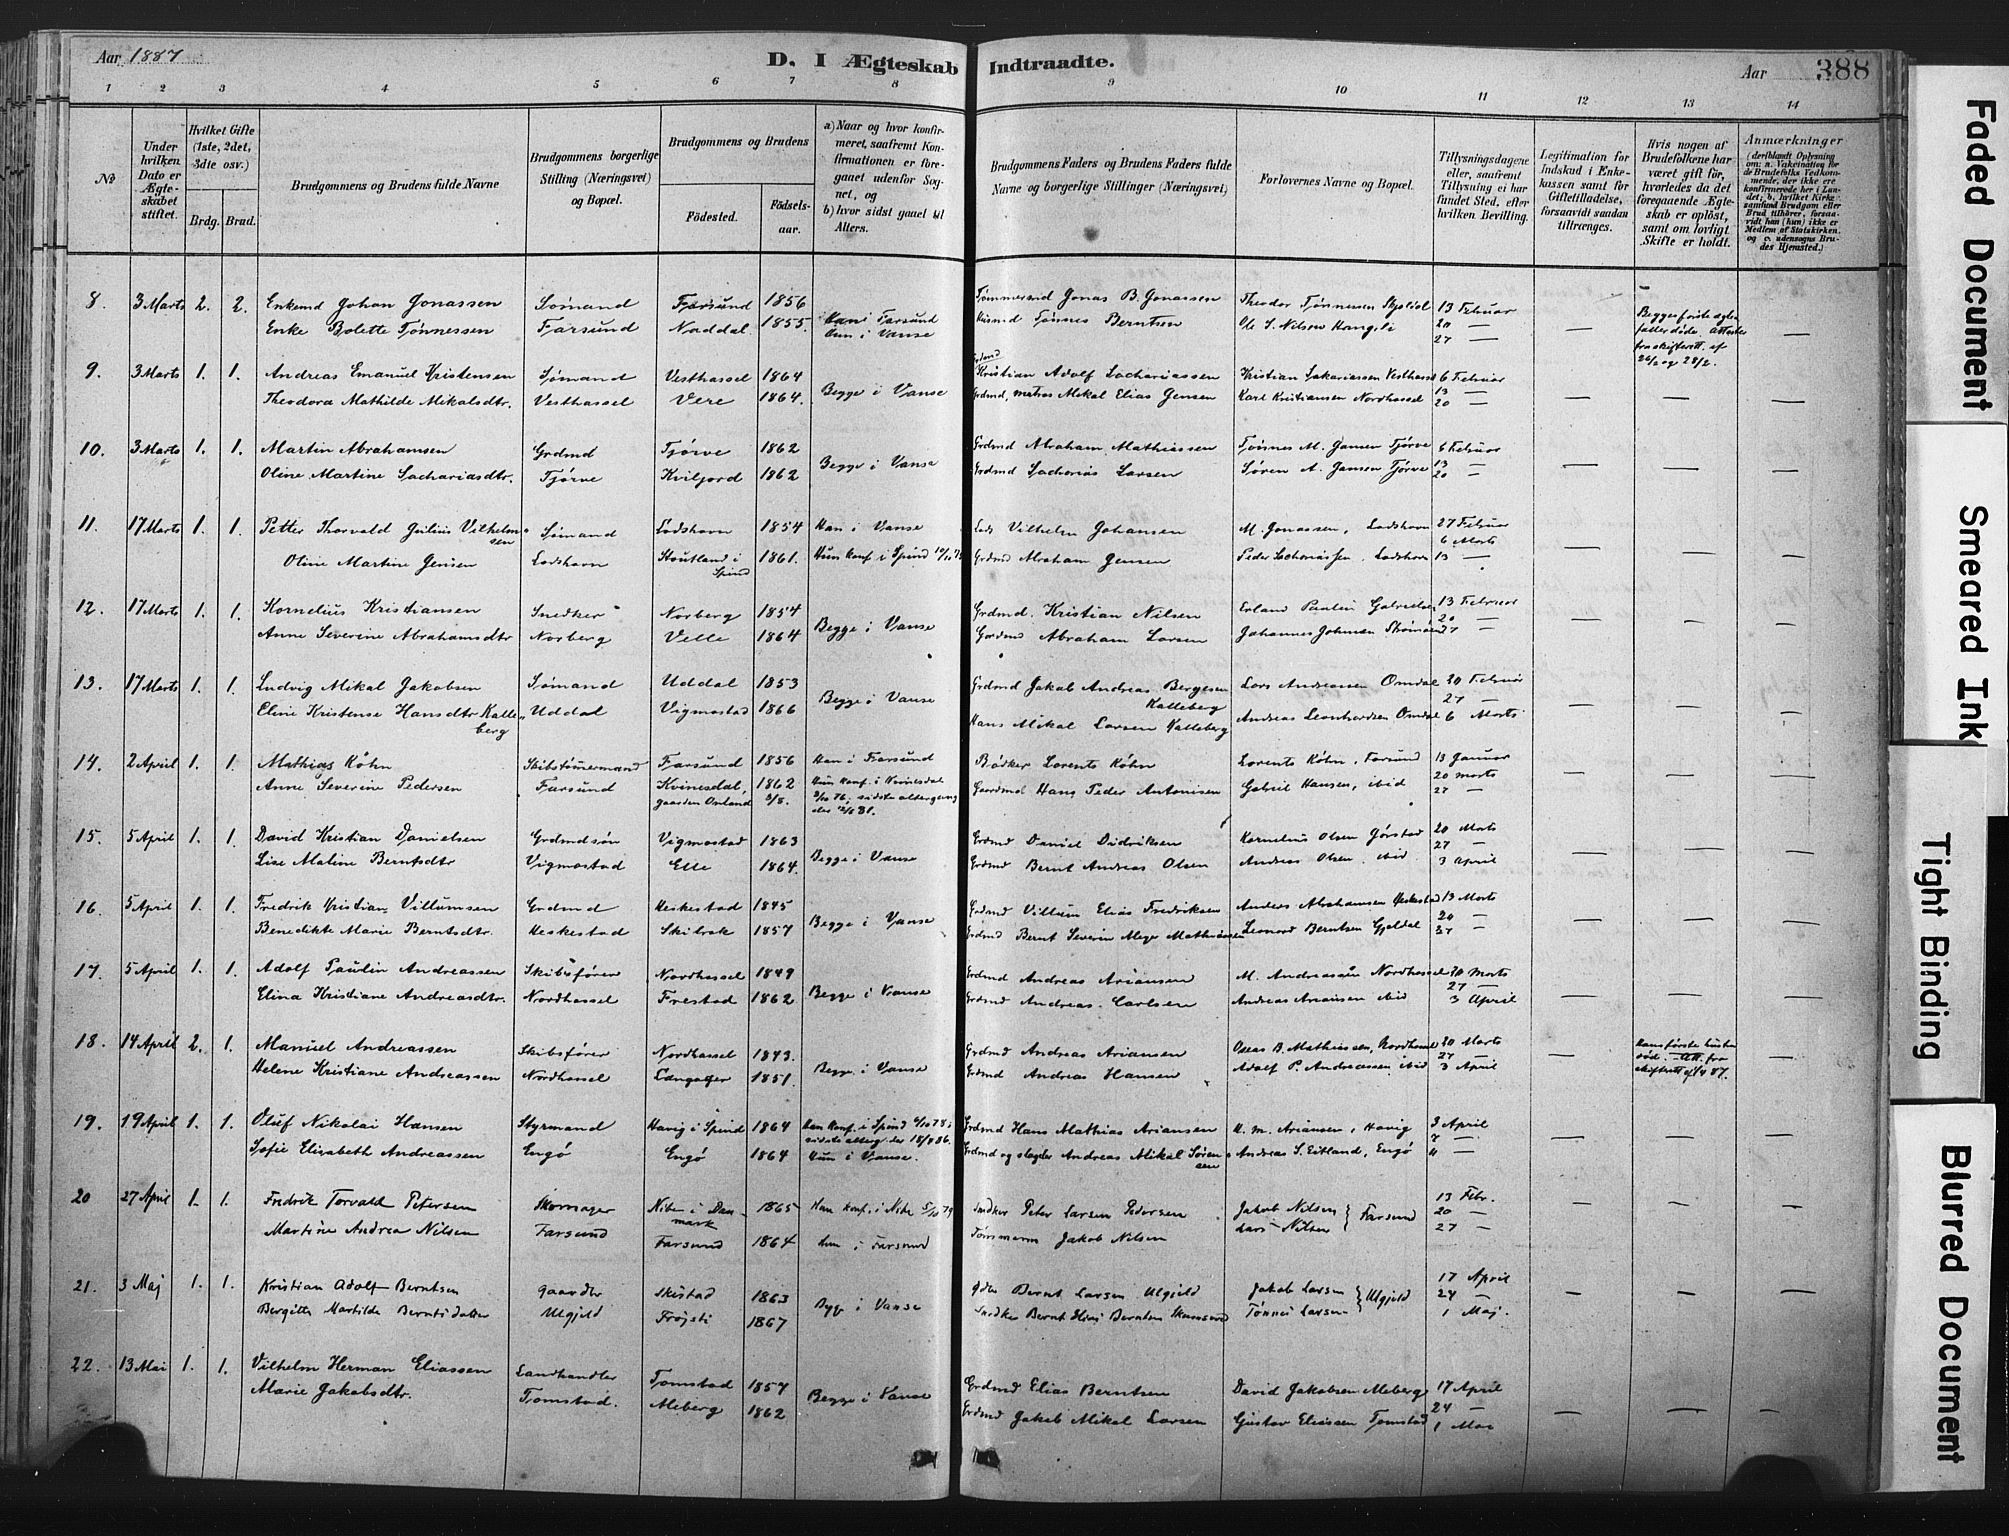 Aar 1887
D. I Ægteskab Indtraadte.
Aar 388
1 2 3 4 5 6 7 8 9 10 11 12 13 14
No
Under hvilken Dato er Ægteskabet stiftet.
Hvilket Gifte (1ste, 2det, 3die osv.)
Brdg. Brud.
Brudgommens og Brudens fulde Navne
Brudgommens borgerlige Stilling (Næringsvei) og Bopæl.
Brudgommens og Brudens
Fødested. Fødselsaar.
a) Naar og hvor konfirmeret, saafremt Konfirmationen er foregaaet udenfor Sognet, og
b) hvor sidst gaaet til Alters.
Brudgommens Faders og Brudens Faders fulde Navne og borgerlige Stillinger (Næringsvei)
Forlovernes Navne og Bopæl.
Tillysningsdagene eller, saafremt Tillysning ei har fundet Sted, efter hvilken Bevilling.
Legitimation for Indskud i Enkekassen samt for Giftetilladelse, forsaavidt saadan tiltrænges.
Hvis nogen af Brudefolkene har været gift før, hvorledes da det foregaaende Ægteskab er opløst, samt om lovligt Skifte er holdt.
Anmærkninger
(deriblandt Oplysning om: a. Vakcination for de Brudefolks Vedkommende, der ikke ere konfirmerede her i Landet; b. hvilket Kirkesamfund Brudgom eller Brud tilhører, forsaavidt han (hun) ikke er Medlem af Statskirken, og c. udensogns Brudes Hjemsted.)
8. 3 Marts 2. 2. Enkemd Johan Jonassen Sømand Farsund 1856 Han i Farsund Tømmermd Jonas B. Jonassen Theodor Tønnessen 13 Februar
Enke Bolette Tønnessen Farsund Nøddal 1855. Hun i Vanse Husmd Tønnes Berntsen Ole S. Nilsen 20 —
27 —
Begges første ægtefæller døde. Attester fra skifterett. af 26/2 og 28/2.
9. 3 Marts 1. 1. Andreas Emanuel Kristensen Sømand Vesthassel 1864 Begge i Vanse Grdmd Kristian Adolf Sachariassen Kristian Sakariassen Vesthassel 6 Februar
Theodora Mathilde Mikalsdtr. Vesthassel Vere 1864. Grdmd, matros Mikal Elias Jensen Karl Kristiansen Nordhassel 13 —
20 —
10. 3 Marts 1. 1. Martin Abrahamsen Grdmd Tjørve 1862 Begge i Vanse Grdmd Abraham Mathiassen Tønnes M. Jansen Tjørve 6 Februar
Oline Martine Sachariasdtr. Tjørve Kviljord 1862 Grdmd Sacharias Larsen Søren A. Jansen Tjørve 13 —
20 —
11. 17 Marts 1. 1. Petter Thorvald Julius Vilhelmsen Sømand Lodshavn 1854 Han i Vanse Lods Vilhelm Johansen M. Jonassen, Lodshavn 27 Februar
6 Marts
Oline Martine Jensen Lodshavn Stoutland i Spind 1861. Hun konf. i Spind Grdmd Abraham Jensen Peder Sachariassen, Lodshavn 13 —
12. 17 Marts 1. 1. Kornelius Kristiansen Snedker Norberg 1854 Begge i Vanse Grdmd. Kristian Nilsen Erland Paulin Gabrielsen 13 Februar
20 —
Anne Severine Abrahamsdtr Norberg Velle 1864 Gardmd Abraham Larsen Johannes Johnsen 27 —
13. 17 Marts 1. 1. Ludvig Mikal Jakobsen Sømand Uddal 1853 Begge i Vanse Grdmd Jakob Andreas Bergesen Kalleberg Lars Andreassen Omdal 20 Februar
27 —
Eline Kristense Hansdtr Kalleberg Uddal Vigmostad 1866 Hans Mikal Larsen Kalleberg Andreas Leonhardsen Omdal 6 Marts
14. 2 April 1. 1. Mathias Køhn Skibstømmermand Farsund 1856 Han i Farsund Bødker Lorents Køhn Lorents Køhn, Farsund 13 Januar
Anne Severine Pedersen Farsund Kvinesdal, gaarden Omland 1862 3/8. Hun konf. i Kvinesdal 3/10 76; sidste altergang der 12/6 81. Gaardmd Hans Peder Antonisen Gabriel Hansen, ibid 20 Marts
27 —
15. 5 April 1. 1. David Kristian Danielsen Grdmdsøn Vigmostad 1863 Begge i Vanse Grdmd Daniel Didriksen Kornelius Olsen Jørstad 20 Marts
27 —
Lise Malene Berntsdtr Vigmostad Elle 1864. Grdmd Bernt Andreas Olsen Andreas Olsen. ibid. 3 April
16. 5 April 1. 1. Fredrik Kristian Villumsen Grdmd Heskestad 1845 Begge i Vanse Grdmd Villum Elias Fredriksen Anders Abrahamsen Heskestad 13 Marts
20 —
Benedikte Marie Berntsdtr. Heskestad Skibrak 1857 Grdmd Bernt Severin Meyer Mathiassen Leonard Berntsen Gjeldal 27 —
17. 5 April 1. 1. Adolf Paulin Andreassen Skibsfører Nordhassel 1849 Begge i Vanse Grdmd Andreas Ariansen M. Andreassen Nordhassel 20 Marts
27 —
Elina Kristiane Andreasdtr. Nordhassel Frestad 1862 Grdmd Andreas Carlsen Andreas Ariansen ibid 3 April
18. 14 April 2. 1. Manuel Andreassen Skibsfører Nordhassel 1843. Begge i Vanse Grdmd Andreas Ariansen Oseas B. Mathiassen, Nordhassel 20 Marts
27 —
Helene Kristiane Andreassen Nordhassel Langager 1851. Grdmd Andreas Hansen Adolf P. Andreassen ibid 3 April
Hans første hustru død. Att. fra skifterett af 1/4 87.
19. 19 April 1. 1. Oluf Nikolai Hansen Styrmand Havig i Spind 1864 Han konf. i Spind 6/10 78; sidste alterg. der 15/8 86. Grdmd Hans Mathias Ariansen H. M. Ariansen, Havig 3 April
7 —
Sofie Elisabeth Andreassen Engø Engø 1864 Hun i Vanse. Grdmd og slagter Andreas Mikal Sørensen Andreas S. Eitland, Engø 11 —
20 27 April 1. 1. Fredrik Torvald Petersen Skomager Nibe i Danmark 1865 Han konf. i Nibe 5/10 79 Snedker Peter Larsen Pedersen Jakob Nilsen } Farsund 13 Febr.
20 —
Martine Andrea Nilsen Farsund Farsund 1864 hun i Farsund Tømmerm Jakob Nilsen Lars Nilsen 27 —
21. 3 Maj 1. 1. Kristian Adolf Berntsen Skistad 1863 Begge i Vanse Bernt Larsen Ulgjeld Jakob Larsen } Ulgjeld 17 April
24 —
Bergitte Martilde Berntsdatter Ulgjeld Frøjsti 1867 Snedker Bernt Elias Berntsen Tønnes Larsen 1 Maj.
22. 13 Mai 1. 1. Vilhelm Herman Eliassen Landhandler Tjomstad 1857 Begge i Vanse Grdmd Elias Berntsen David Jakobsen Meberg 17 April
24 —
Marie Jakobsdtr. Tjomstad. Meberg 1862 Grdmd Jakob Mikal Larsen Gustav Eliassen Tjomstad 1 Mai
Faded Document
Smeared Ink
Tight Binding
Blurred Document